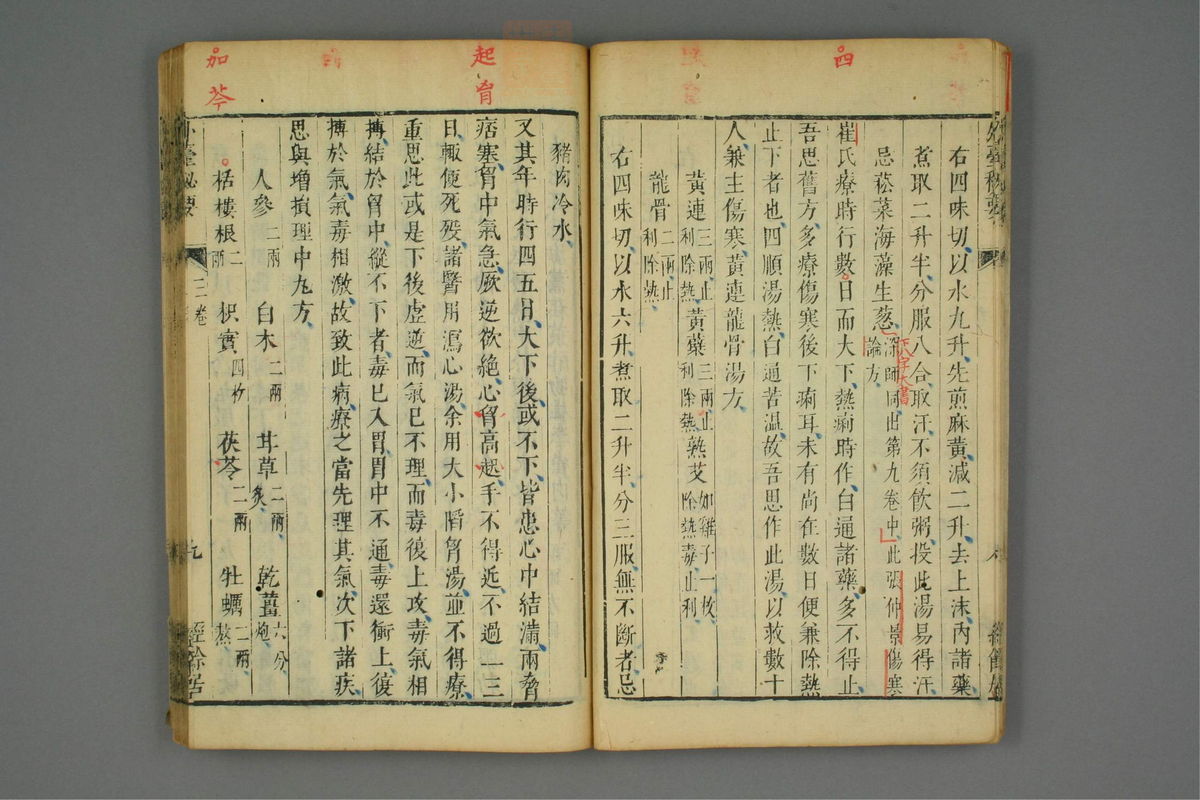 四
右四味切以水九升先煎麻黄減二升去上沫內諸藥
煮取二升半分服八合取汗不須飲粥投此湯易得汗
忌菘菜海藻生葱深師同出第九卷中此張仲景傷寒
論方
八字大書
崔氏療時行數日而大下熱痢時作白通諸藥多不得止
吾思舊方多療傷寒後下痢耳未有尚在數日便兼除熱
止下者也四順湯熱白通苦溫故吾思作此湯以救數十
人兼主傷寒黄連龍骨湯方
黄連三兩止利除熱 黄蘗三兩止利除熱 熟艾如雞子一枚除熱毒止利
龍骨二兩止利除熱
右四味切以水六升煮取二升半分三服無不斷者忌
起 胷
加 芩
豬肉冷水
又其年時行四五日大下後或不下皆患心中結滿兩脅
痞塞胷中氣急厥逆欲絶心胷高起手不得近不過一二三
日輙便死殁諸醫用瀉心湯余用大小陷胷湯並不得療
重思此或是下後虛逆而氣已不理而毒復上攻毒氣相
搏結於胷中縱不下者毒已入胃胃中不通毒還衝上復
搏於氣氣毒相激故致此病療之當先理其氣次下諸疾
思與增損理中丸方
人參二兩 白术二兩 甘草二兩炙 乾薑六分炮
栝樓根二兩 枳實四枚 茯苓二兩 牡蠣二兩熬
外臺秘要 二卷 九 經餘居